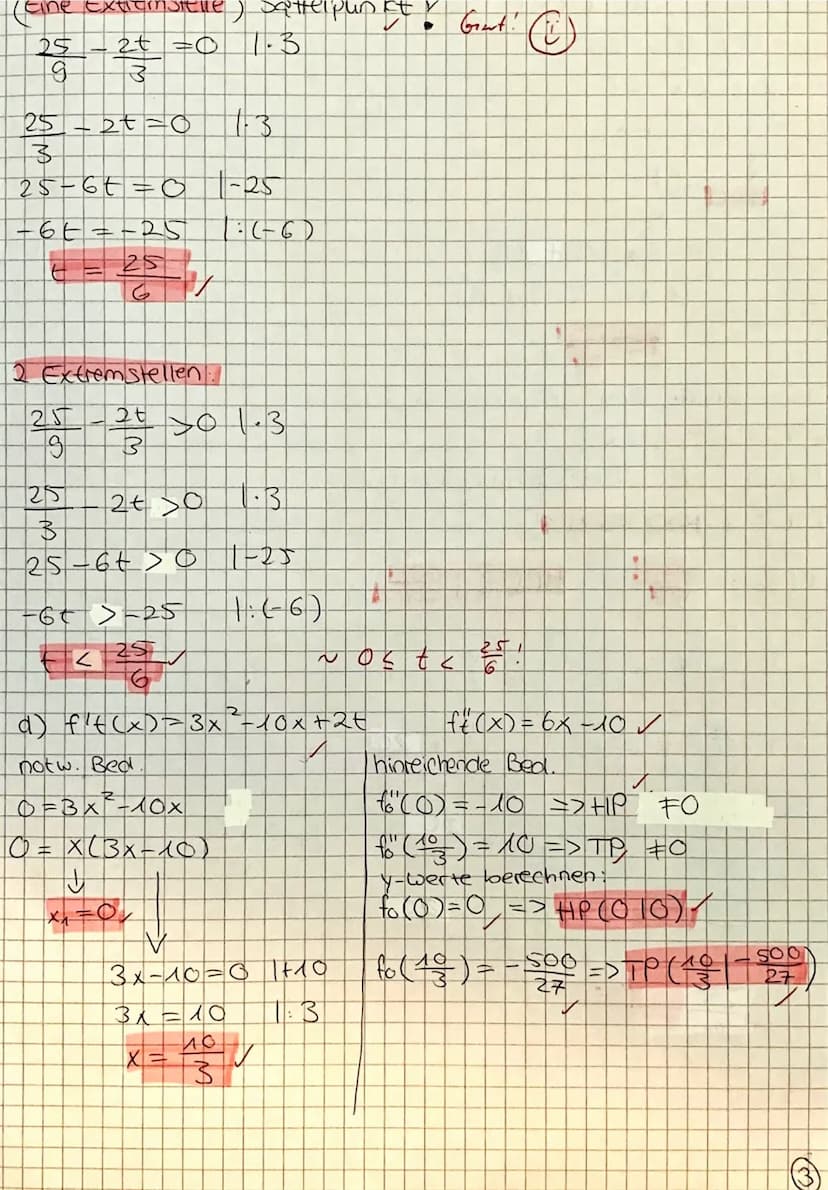 (Eine Extremstelle) Sattelpunkt! Gut!
25/9 - 2t/3 = 0 |·3
25/3 - 2t = 0 |·3
25 - 6t = 0 |-25
-6t = -25 |:(-6)
t = 25/6 ✓
2 Extremstellen:
25/9 - 2t/3 > 0 |·3
25/3 - 2t > 0 |·3
25 - 6t > 0 |-25
-6t > -25 |:(-6)
t < 25/6 ✓ ~ 0 ≤ t < 25/6 !
d) f't(x) = 3x² - 10x + 2t ✓ f"t(x) = 6x - 10 ✓
notw. Bed.
0 = 3x² - 10x
0 = x(3x - 10)
x₁ = 0 ✓
3x - 10 = 0 |+10
3x = 10 |:3
x = 10/3 ✓
hinreichende Bed.
f₀"(0) = -10 => HP ✓ ≠0
f₀"(10/3) = 10 => TP ≠0
y-Werte berechnen:
f₀(0) = 0 ✓ => HP(0|0) ✓
f₀(10/3) = -500/27 ✓ => TP(10/3|-500/27) ✓
3